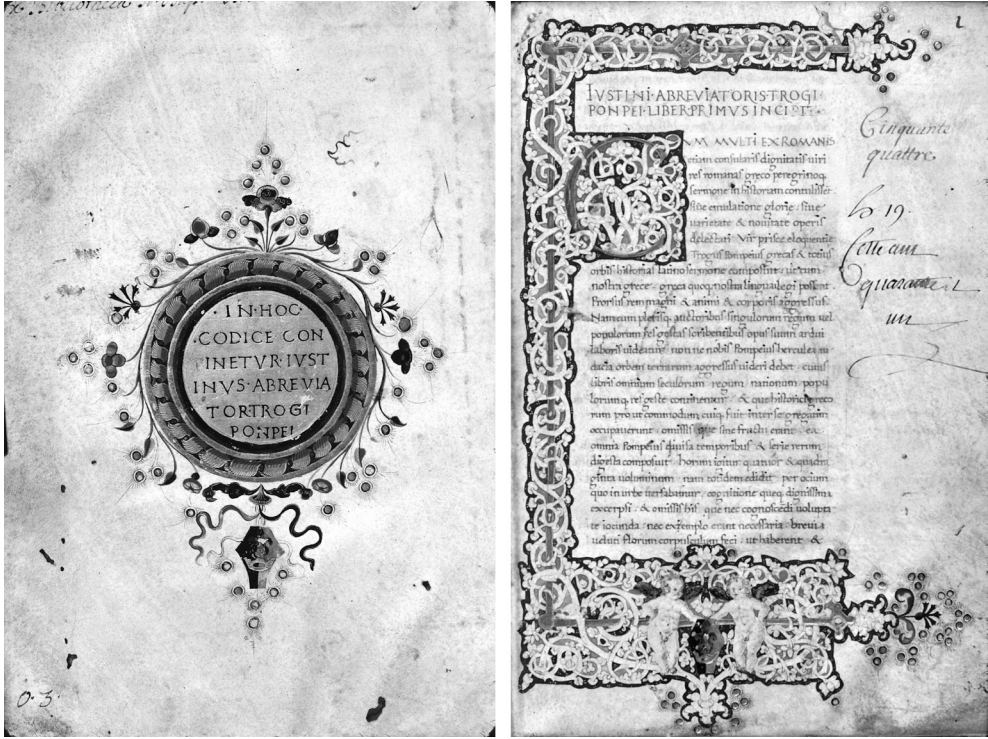 ·IN·HOC·
CODICE CON
INETVR IVST
INVS·ABREVIA
TOR·TROGI
PONPEI
O·3·
1
IVSTINI·ABREVIATORIS·TROGI
PONPEI·LIBER·PRIMUS INCIPT·
VM MVLTI EX ROMANIS
etiam consularis dignitatis uiri
res romanas greco peregrinoq
sermone in historiam contulissēt
siue emulatione glorie siue
uarietate & nouitate operis
delectati Vir prisce eloquentie
Trogus Pompeius grecas & totius
orbis historias latino sermone composuit ut cum
nostra grece greca quoq nostra lingua legi possent
Prorsus rem magni & animi & corporis aggressus
Nam cum plerisq auctoribus singulorum regum uel
populorum res gestas scribentibus opus suum ardui
laboris uideatur non ne nobis Pompeius herculea au
dacia orbem terrarum aggressus uideri debet cuius
libris omnium seculorum regum nationum popu
lorumq res geste continentur & que historici greco
rum pro ut commodum cuiq fuit inter se
occupauerunt omissis que sine fructu erant ea
omnia Pompeius diuisa temporibus & serie rerum
digesta composuit horum igitur quatuor & quadra
ginta uoluminum nam totidem edidit per ocium
quo in urbe uersabamur cognitione queq dignissima
excerpsi & omissis his que nec cognoscēdi uolupta
te iocunda nec exemplo erant necessaria breue
ueluti florum corpusculum feci ut haberent &
Cinquante
quattre
19